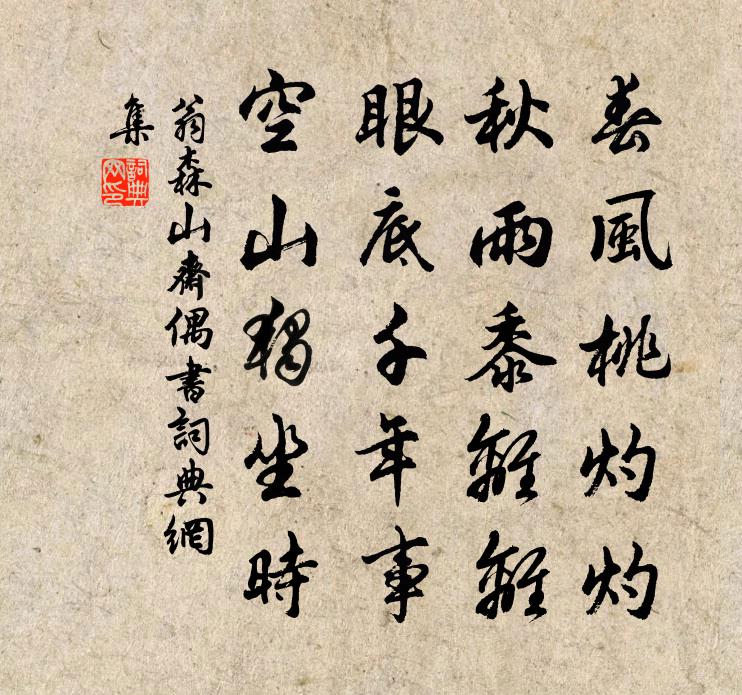 春風桃灼灼
秋雨黍離離
眼底千年事
空山獨坐時
翁森山齋偶書詞典網
集
詞典
網印